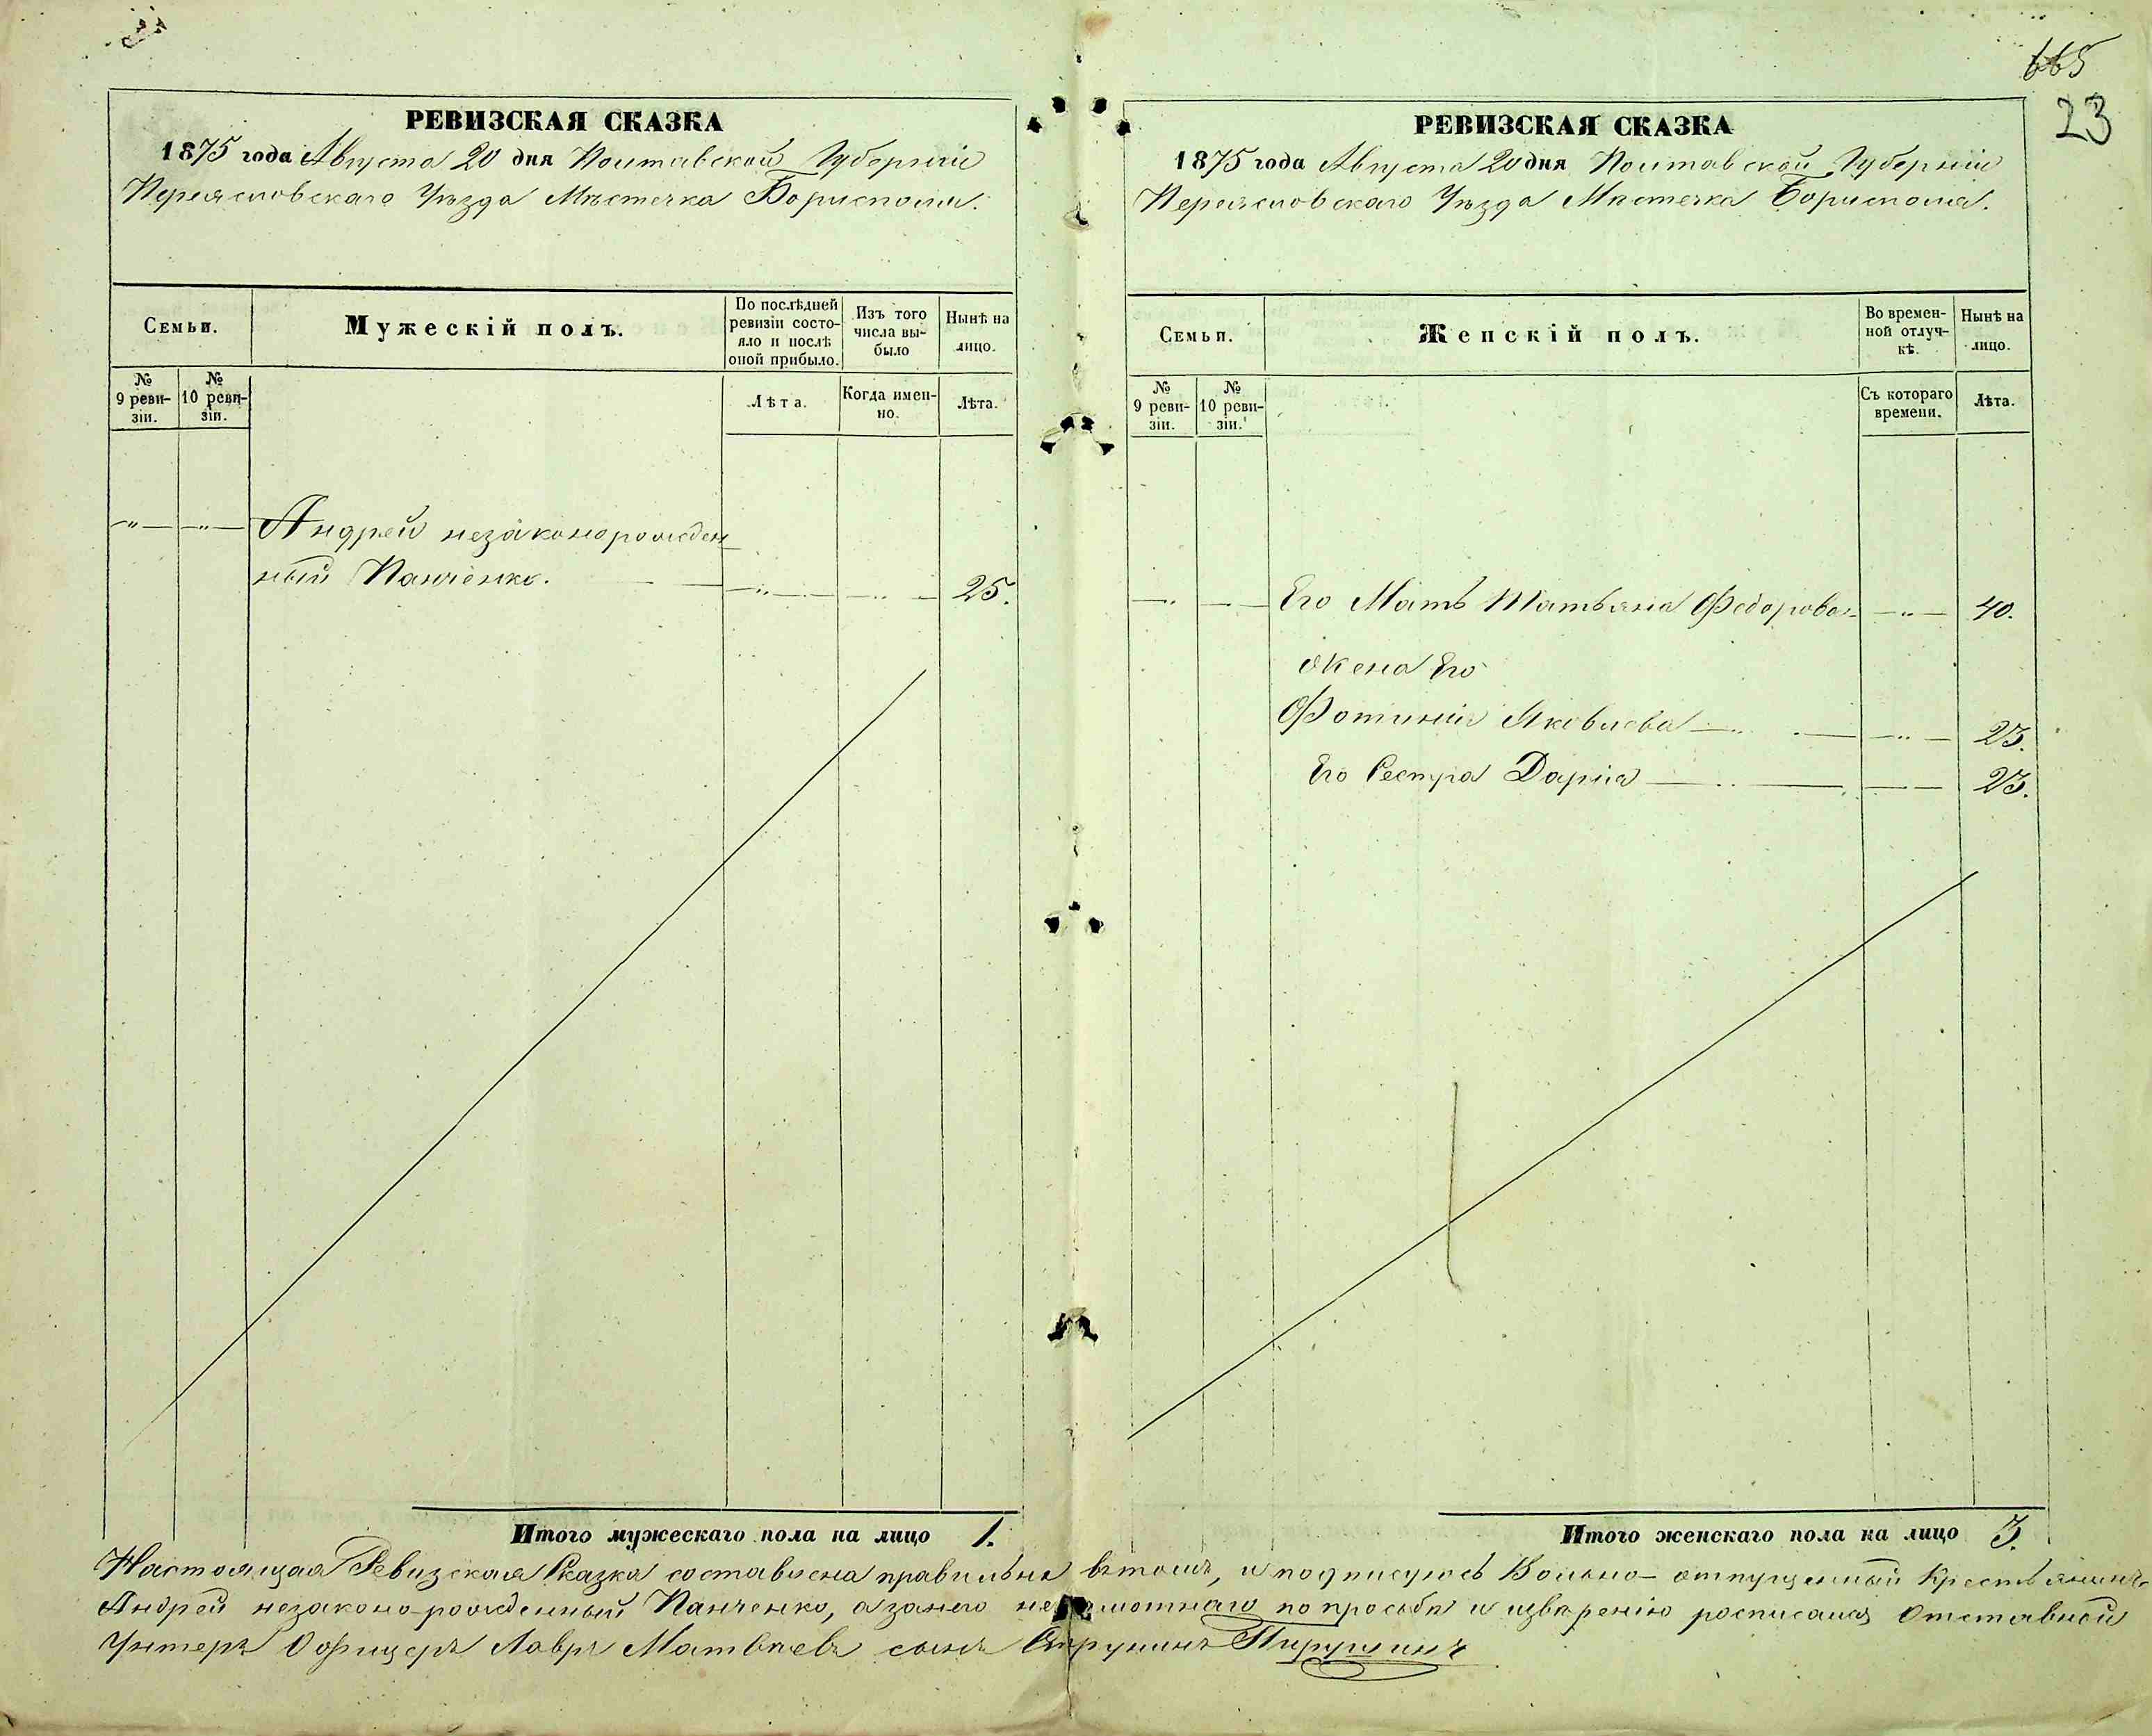 665
23
РЕВИЗСКАЯ СКАЗКА
1875 года Августа 20 дня Полтавской Губерніи
Переясловскаго Уѣзда Мѣстечка Борисполя.
Семьи.
Мужескій полъ.
По послѣдней ревизіи состо-
яло и послѣ оной прибыло.
Изъ того числа вы-
было
Нынѣ на лицо.
№ 9 реви-
зіи.
№ 10 реви-
зіи.
Лѣта.
Когда имен-
но.
Лѣта.
Андрей незаконорожден
ный Панченко. 25.
Итого мужескаго пола на лицо 1.
РЕВИЗСКАЯ СКАЗКА
1875 года Августа 20 дня Полтавской Губерніи
Переясловскаго Уѣзда Мѣстечка Борисполя.
Семьи.
Женскій полъ.
Во времен-
ной отлуч-
кѣ.
Нынѣ на лицо.
№ 9 реви-
зіи.
№ 10 реви-
зіи.
Съ котораго времени.
Лѣта.
Его Мать Татьяна Федорова 40.
жена Его
Фотинія Яковлева 23.
Его Сестра Дарія 23.
Итого женскаго пола на лицо 3.
Настоящая Ревизская Сказка составлена правильно втомъ, и подписуюсь Вольно-отпущенный Крестьянинъ
Андрей незаконо-рожденный Панченко, а занего неграмотнаго по просьбѣ и извѣренію росписался Отставной
Унтеръ Офицеръ Лавръ Матвѣевъ сынъ